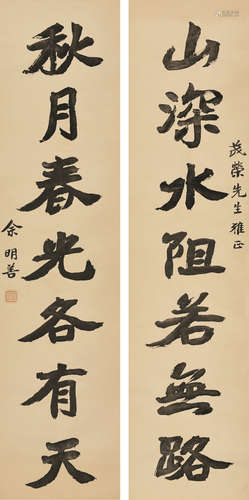 山深水阻若無路
茂榮先生雅正
秋月春光各有天
余明善